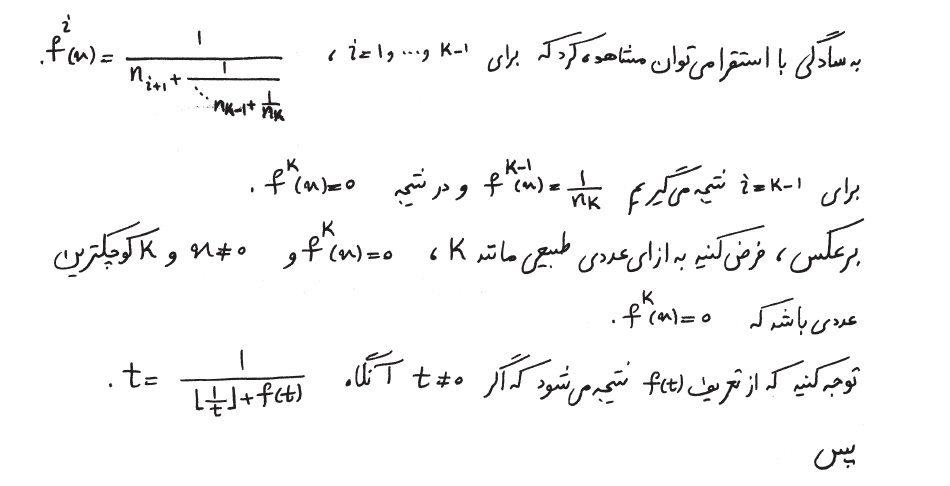 به سادگی با استقرا می‌توان مشاهده کرد که برای i=1 و ... و k-1 ، f^i(x) = 1/(n_{i+1} + 1/(⋱ n_{k-1} + 1/n_k)) .
برای i=k-1 نتیجه می‌گیریم f^{k-1}(x) = 1/n_k و در نتیجه f^k(x)=0 .
برعکس ، فرض کنید به ازای عددی طبیعی مانند k ، f^k(x)=0 و x≠0 و k کوچکترین
عددی باشد که f^k(x)=0 .
توجه کنید که از تعریف f(t) نتیجه می‌شود که اگر t≠0 آنگاه t = 1/(⌊1/t⌋+f(t)) .
پس